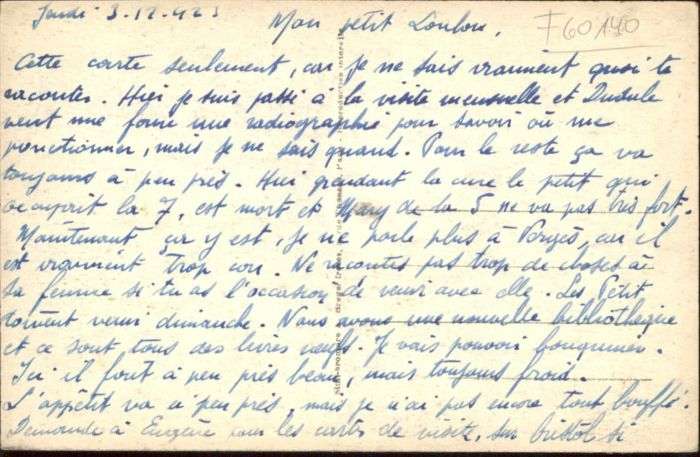 Jeudi 3-12-42
Mon petit Loulou,
F60140
Cette carte seulement, car je ne sais vraiment quoi te
raconter. Hier je suis passé à la visite mensuelle et Dudule
veut me faire une radiographie pour savoir où me
ponctionner, mais je ne sais quand. Pour le reste ça va
toujours à peu près. Hier pendant la cure le petit qui
occupait la 7, est mort et Mary de la 5 ne va pas très fort.
Maintenant ça y est. Je ne parle plus à Vergès, car il
est vraiment trop con. Ne racontes pas trop de choses à
sa femme si tu as l'occasion de venir avec elle. Les Petit
doivent venir dimanche. Nous avons une nouvelle bibliothèque
et ce sont tous des livres neufs. Je vais pouvoir bouquiner.
Ici il fait à peu près beau, mais toujours froid.
L'appétit va à peu près, mais je n'ai pas encore tout bouffé.
Demande à Eugène pour les cartes de visite, sur bristol si